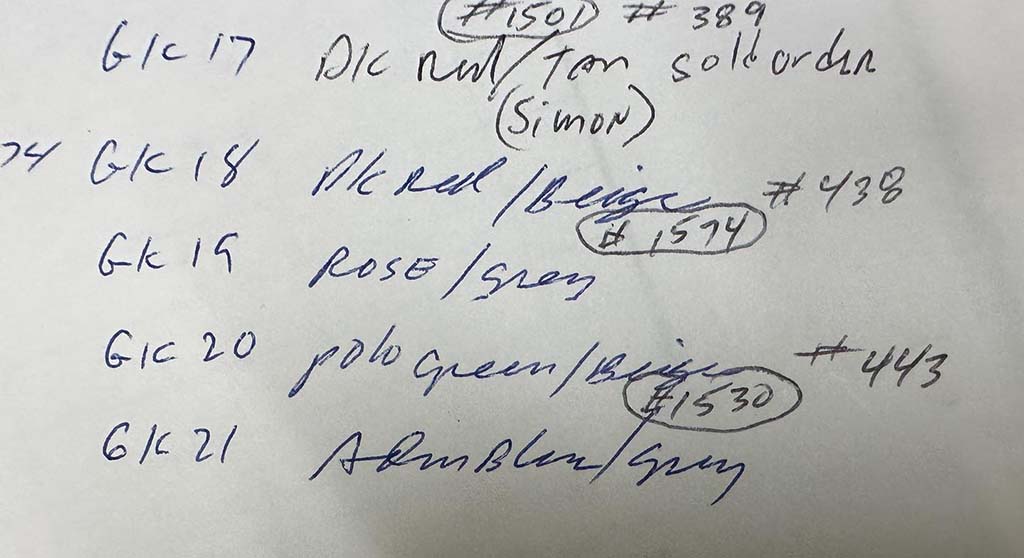 #1501 # 389
GK 17 DK Red/Tan sold order
(Simon)
74 GK 18 DK Red/Beige # 438
# 1574
GK 19 ROSE/grey
GK 20 polo green/Beige # 443
#1530
GK 21 /grey